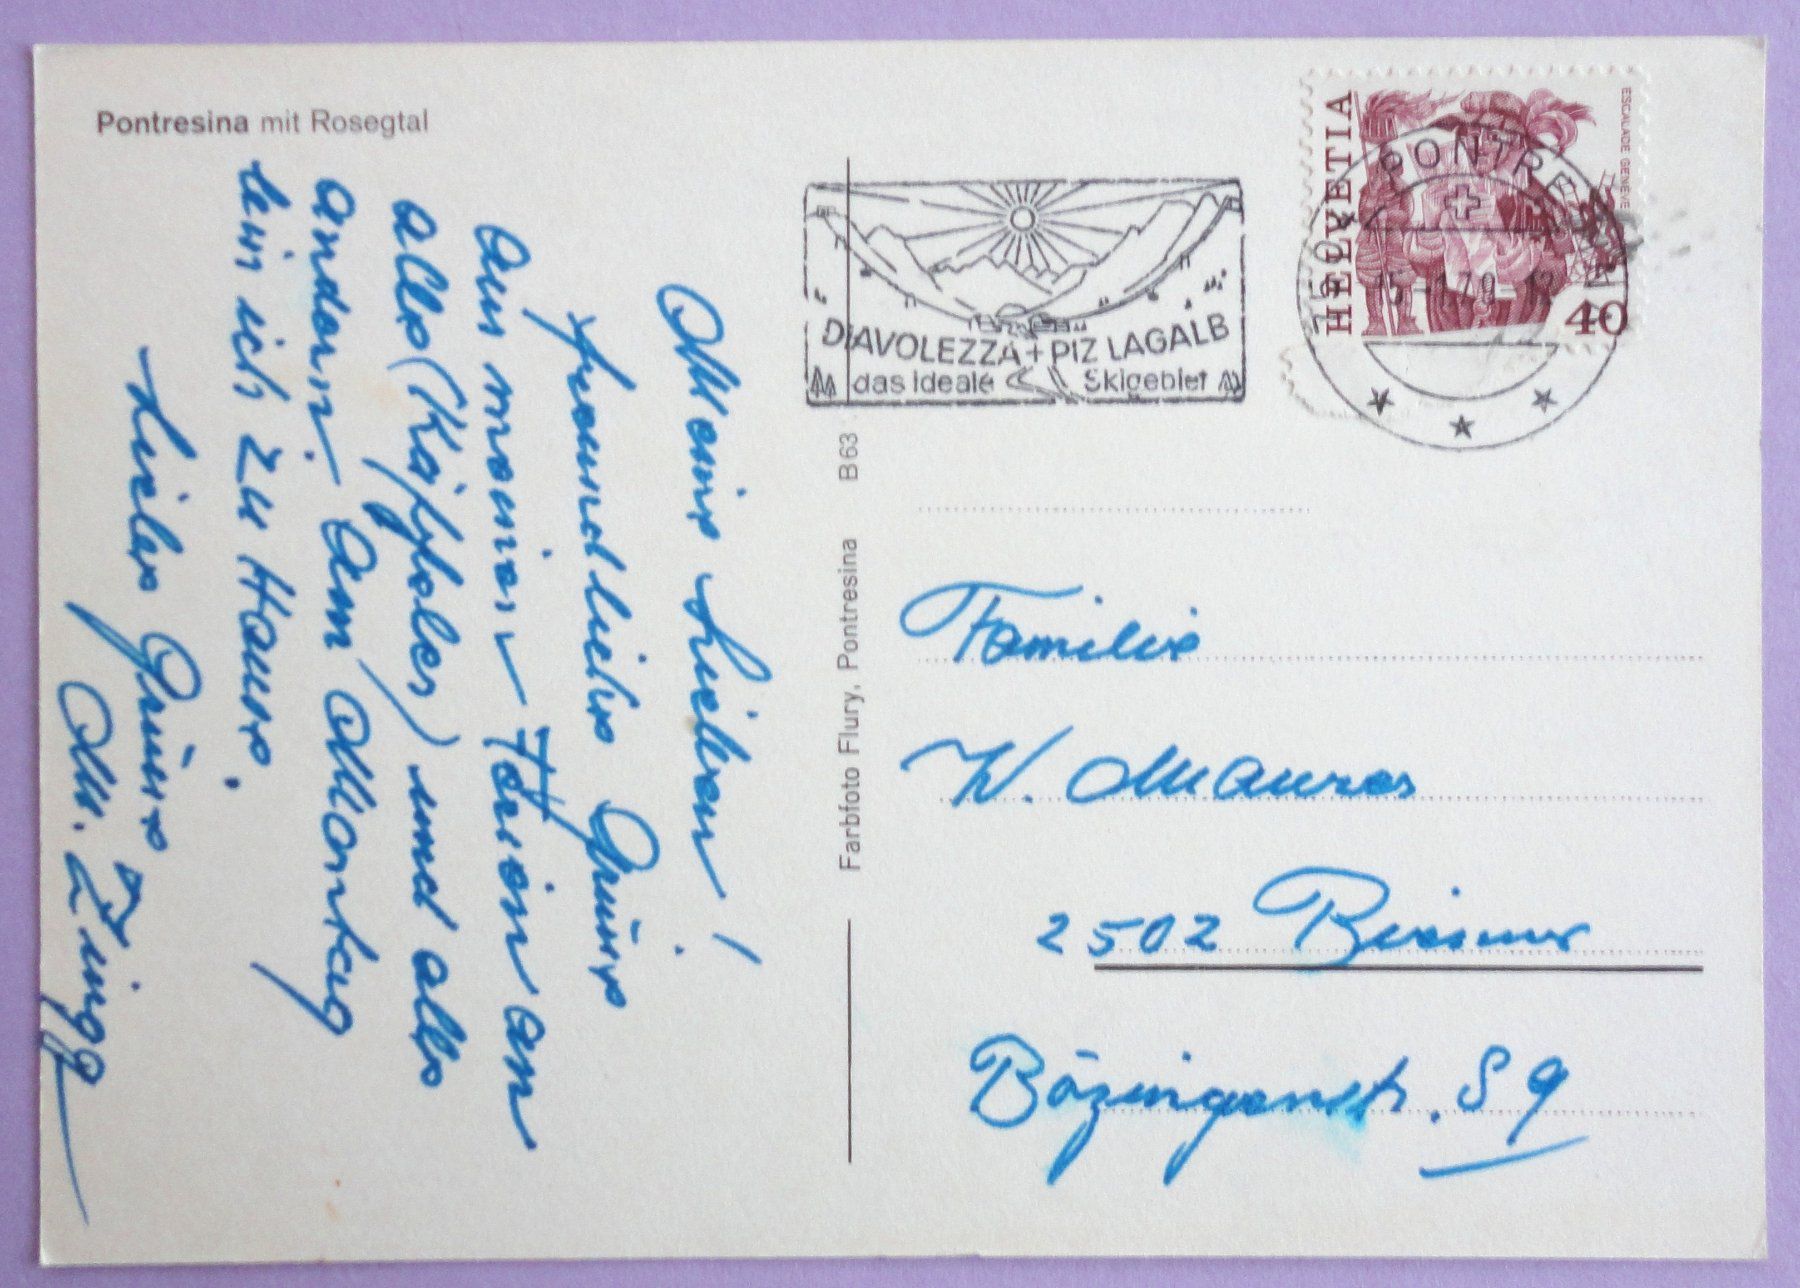 Pontresina mit Rosegtal
Meine Lieben!
freundliche Grüsse
aus meinen Ferien an
alle (Käffeler) und alle
andern. Am Montag
bin ich zu Hause.
Liebe Grüsse
M. Zingg
Farbfoto Flury, Pontresina B63
DIAVOLEZZA + PIZ LAGALB
das ideale Skigebiet
HELVETIA
ESCALADE GENÈVE
40
PONTRESINA
Familie
W. Maurer
2502 Bienne
Bözingenstr. 89